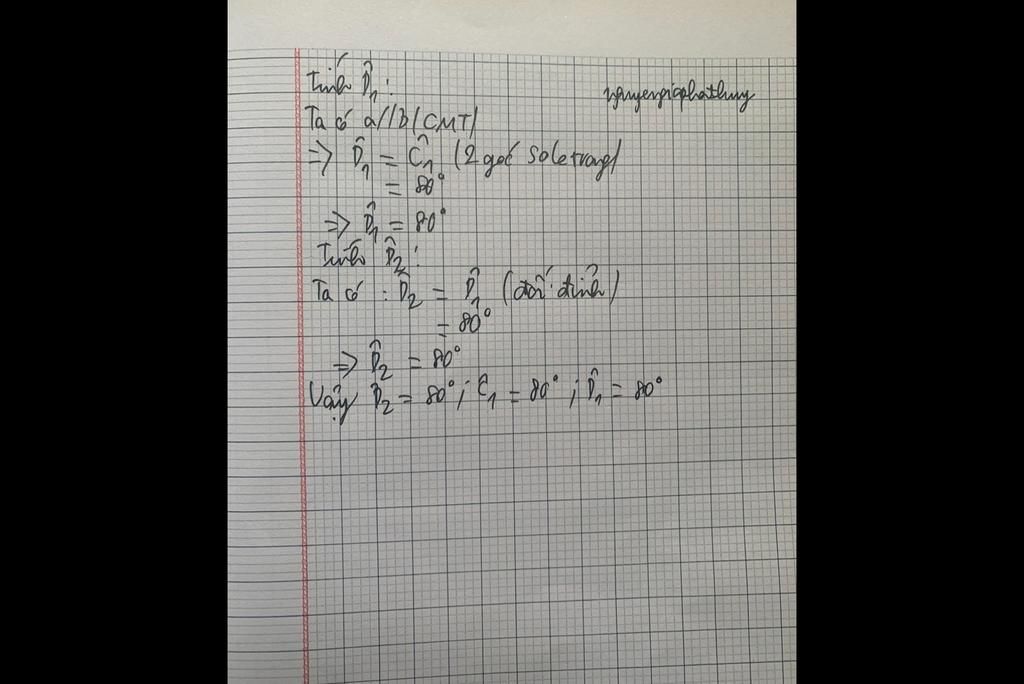 Tính D̂₁ :
nguyengiaphathuy
Ta có a//b (CMT)
=> D̂₁ = Ĉ₁ (2 góc so le trong)
= 80°
=> D̂₁ = 80°
Tính D̂₂ :
Ta có : D̂₂ = D̂₁ (đối đỉnh)
= 80°
=> D̂₂ = 80°
Vậy D̂₂ = 80° ; Ĉ₁ = 80° ; D̂₁ = 80°